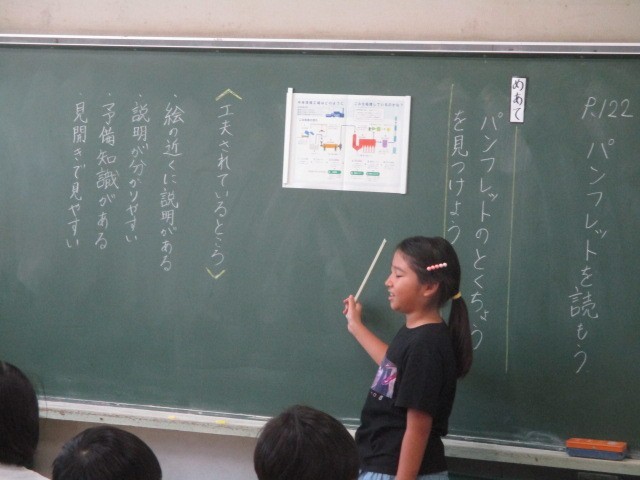 P.122 パンフレットを読もう
めあて
パンフレットのとくちょう
を見つけよう
〈工夫されているところ〉
・絵の近くに説明がある
・説明が分かりやすい
・予備知識がある
・見開きで見やすい